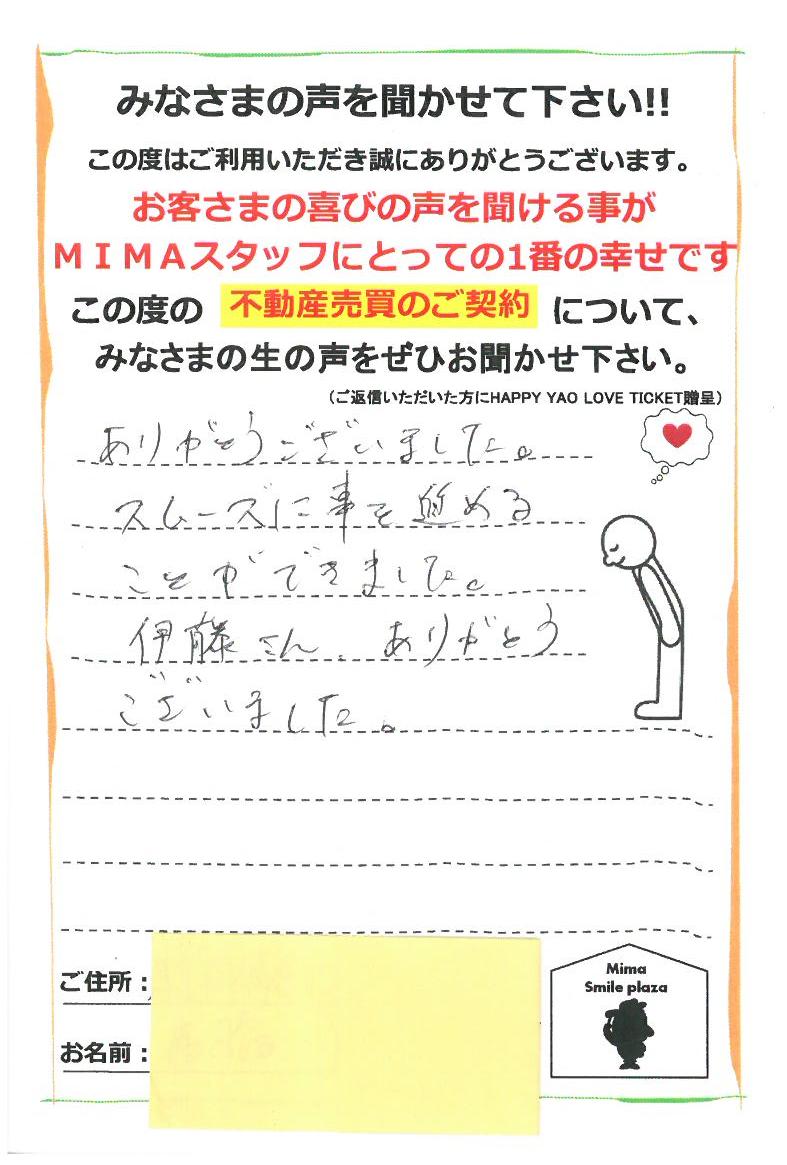 みなさまの声を聞かせて下さい!!
この度はご利用いただき誠にありがとうございます。
お客さまの喜びの声を聞ける事が
ＭＩＭＡスタッフにとっての1番の幸せです
この度の 不動産売買のご契約 について、
みなさまの生の声をぜひお聞かせ下さい。
（ご返信いただいた方にHAPPY YAO LOVE TICKET贈呈）
ありがとうございました。
スムーズに事を進める
ことができました。
伊藤さん、ありがとう
ございました。
ご住所：
お名前：
Mima
Smile plaza